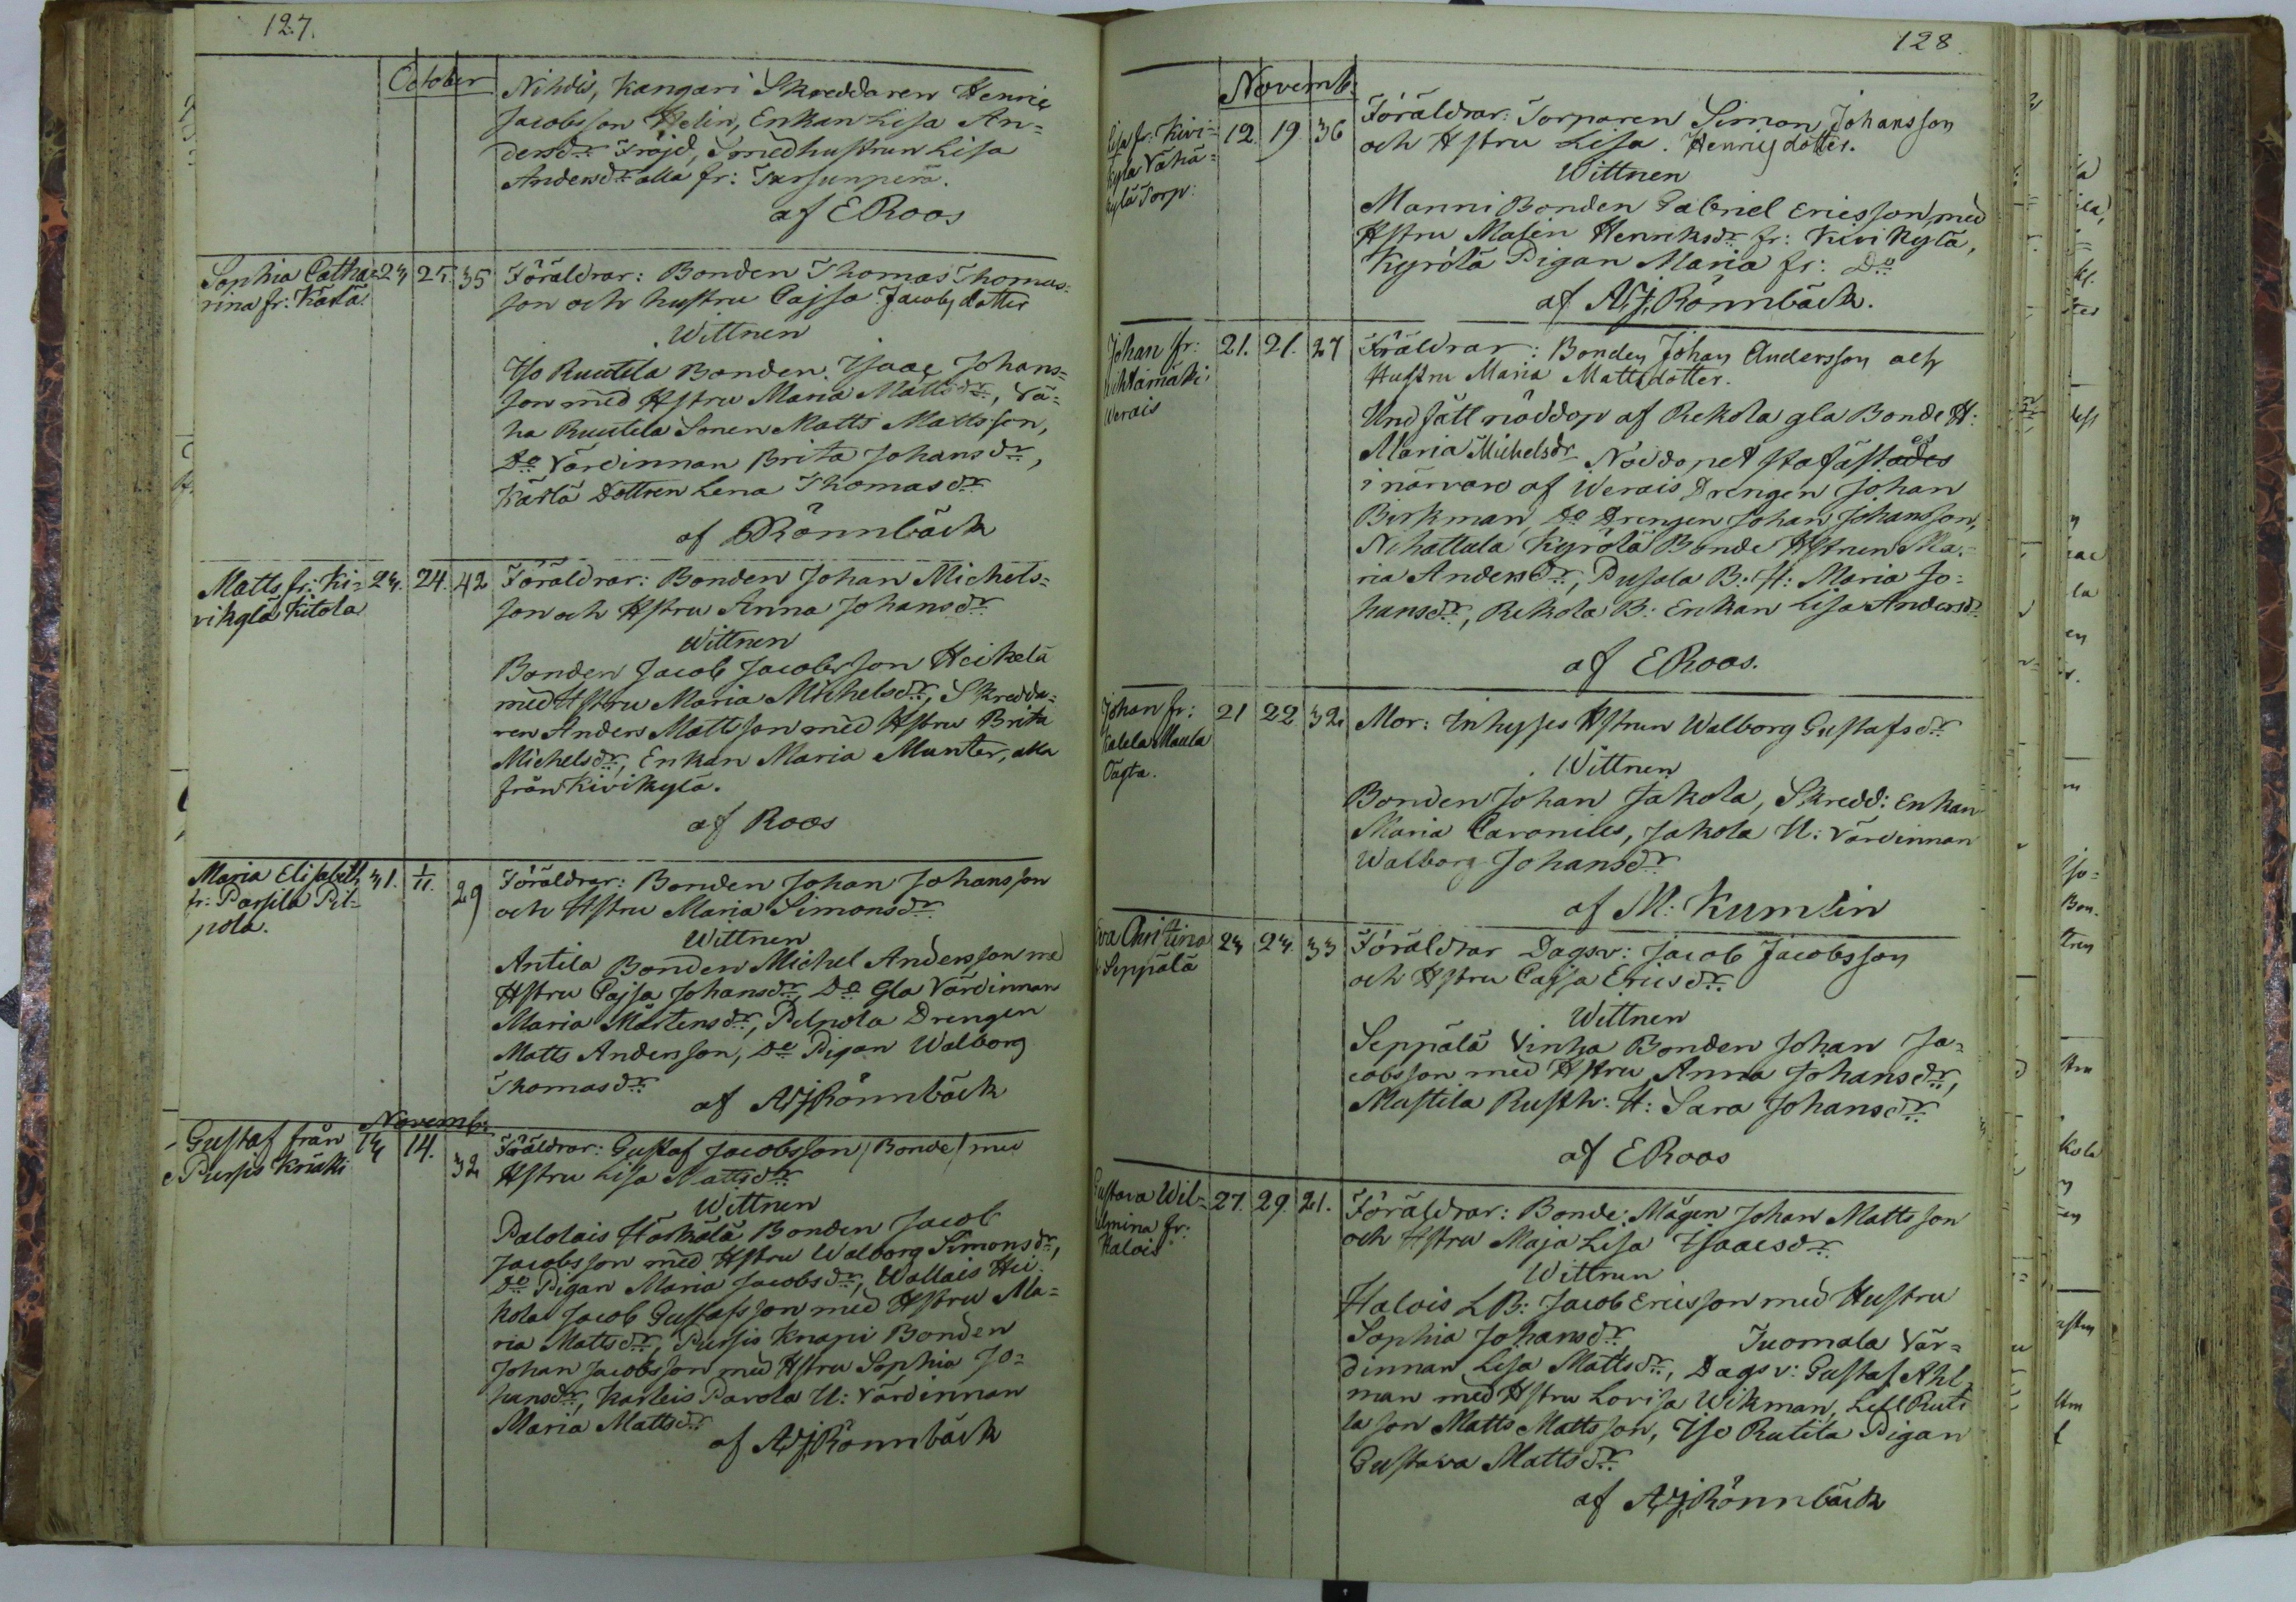 127.
October
Nihdis, Kangari Skreddaren Henric
Jacobsson Helin, Enkan Lisa An=
dersdr Fröjd, Smedhustrun Lisa
Andersdr alla fr: Tursunperä.
af E Roos
Sophia Catha= 23 25. 35 Föräldrar: Bonden Thomas Thomas=
rina fr: Kärlä. son och hustru Cajsa Jacobsdotter
Wittnen
Iso Ruutila Bonden Isaac Johans=
son med Hstru Maria Mattsdr, Vä=
hä Ruutila Sonen Matts Mattsson,
Do Värdinnan Brita Johansdr,
Kärlä Dottren Lena Thomasdr
af Rönnbäck
Matts fr: Ki= 23. 24. 42 Föräldrar: Bonden Johan Michels=
vikylä Kitola son och Hstru Anna Johansdr
Wittnen
Bonden Jacob Jacobsson Heikelä
med Hstru Maria Michelsdr, Skredda=
ren Anders Mattsson med Hstru Brita
Michelsdr, Enkan Maria Munter, alla
från Kivikylä.
af Roos
Maria Elisabeth 31. 1/11. 29 Föräldrar: Bonden Johan Johansson
fr: Parsila Pil= och Hstru Maria Simonsdr
pola.
Wittnen
Antila Bonden Michel Andersson med
Hstru Cajsa Johansdr, Do Gla Värdinnan
Maria Mårtensdr, Pilpola Drengen
Matts Andersson, Do Pigan Walborg
Thomasdr
af AJ Rönnbäck
Novemb:
Gustaf från 13 14. 32 Föräldrar: Gustaf Jacobsson (Bonde) med
Pursis Kriski Hstru Lisa Mattsdr
Wittnen
Palolais Härkälä Bonden Jacob
Jacobsson med Hstru Walborg Simonsdr,
Do Pigan Maria Jacobsdr, Wallais Hei
kola Jacob Gustafsson med Hstru Ma=
ria Mattsdr, Pursis Knapi Bonden
Johan Jacobsson med Hstru Sophia Jo=
hansdr, Karleis Parola U: Värdinnan
Maria Mattsdr
af AJ Rönnbäck
128.
Novemb:
Lisa fr: Kivi= 12. 19 36 Föräldrar: Torparen Simon Johansson
kylä Vähä= och Hstru Lisa Henricsdotter.
kylä Torp:
Wittnen
Manni Bonden Gabriel Ericsson med
Hstru Malin Henriksdr fr: Kivikylä,
Kyrölä Pigan Maria fr: Do
af AJ Rönnbäck.
Johan fr: 21. 21. 27 Föräldrar: Bonden Johan Andersson och
Hustru Maria Mattsdotter.
Werais
Undfått nöddop af Rekola gla Bonde H:
Maria Michelsdr Nöddopet stafästades
i närvaro af Werais Drengen Johan
Birkman, Do Drengen Johan Johansson,
Nihattula Kyrölä Bonde Hstrun Ma=
ria Andersdr, Pusala B: H: Maria Jo=
hansdr, Rekola B: Enkan Lisa Andersdr
af E Roos.
Johan fr: 21 22 32. Mor: Inhyses Hstrun Walborg Gustafsdr
Kalela Maula
Ägta.
Wittnen
Bonden Johan Jakola, Skredd: Enkan
Maria Caronius, Jakola U: Värdinnan
Walborg Johansdr
af M: Kumlin
Eva Christina 23 23. 33 Föräldrar Dagsv: Jacob Jacobsson
Seppälä och Hstru Cajsa Ericsdr
Wittnen
Seppälä Vinha Bonden Johan Ja=
cobsson med Hstru Anna Johansdr,
Mustila Rusth: H: Sara Johansdr
af E Roos
Gustava Wil= 27. 29. 21. Föräldrar: Bonde: Mågen Johan Mattsson
helmina fr: och Hstru Maja Lisa Isaacsdr
Halois
Wittnen
Halois LB: Jacob Ericsson med Hustru
Sophia Johansdr Tuomala Vär=
dinnan Lisa Mattsdr, Dagsv: Gustaf Ahl
man med Hstru Lovisa Wikman, Lill Ruti
la son Matts Mattsson, Iso Rutila Pigan
Gustava Mattsdr
af AJ Rönnbäck